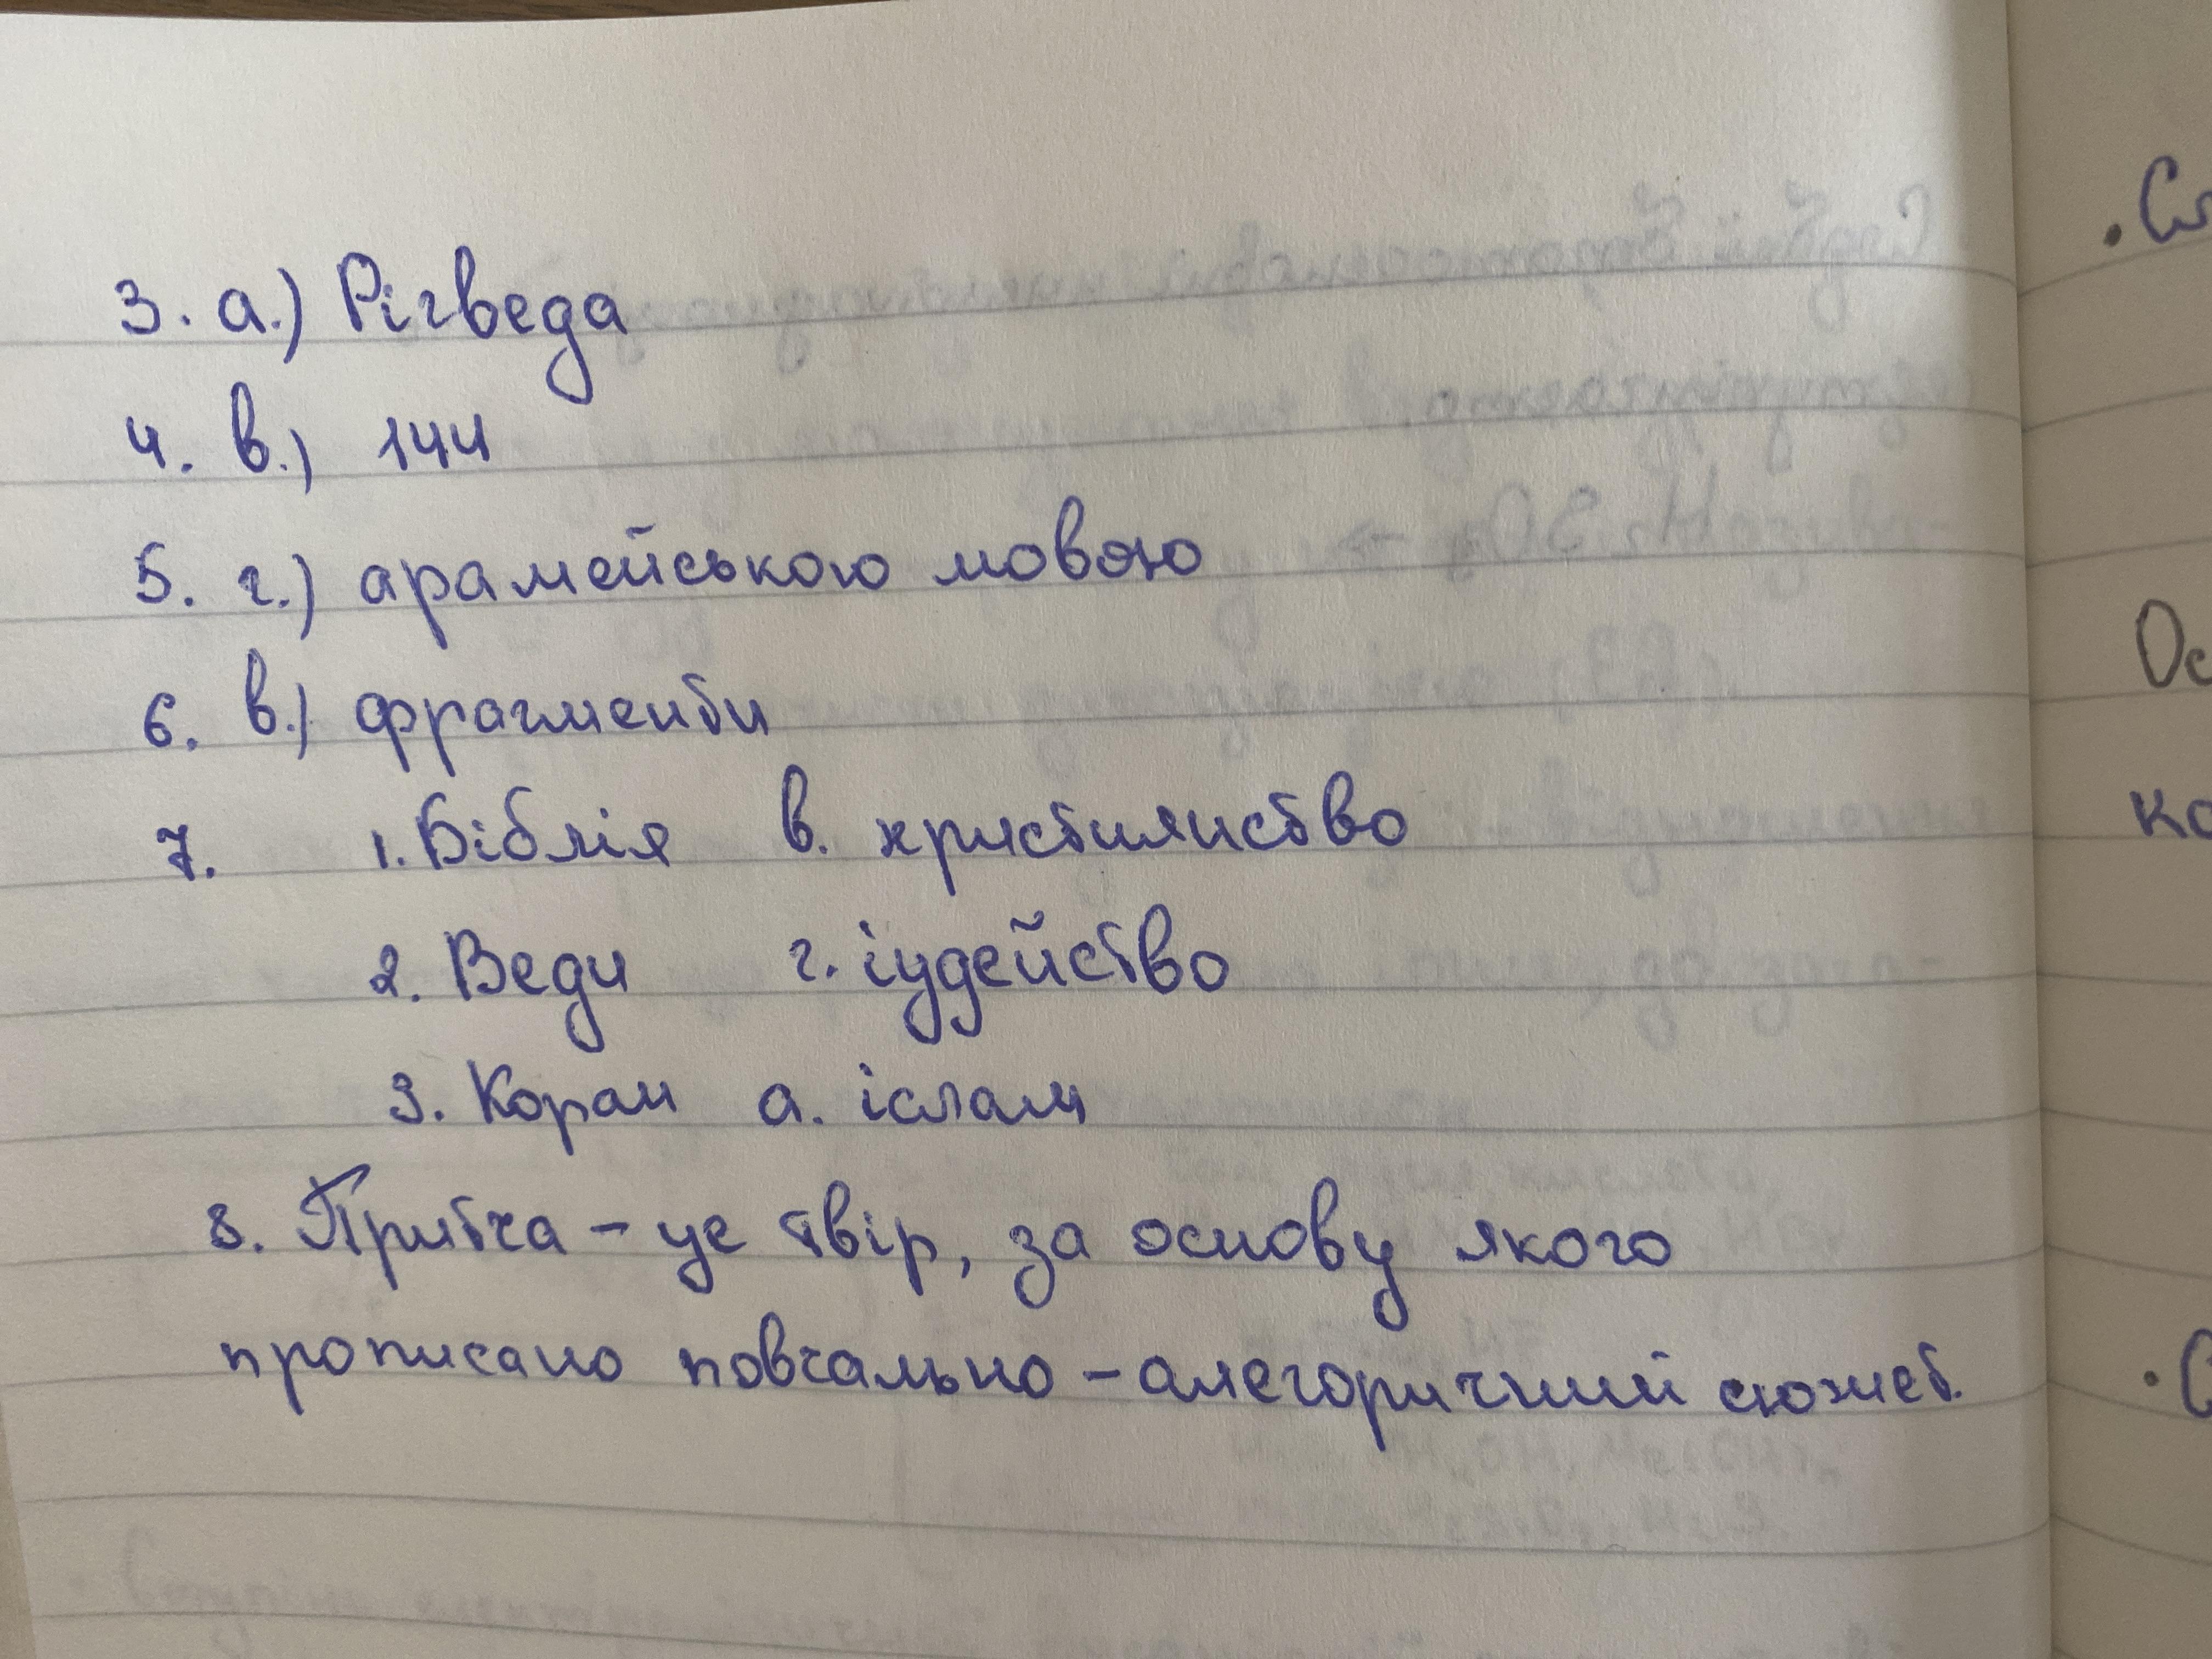 3. а.) Рігведа
4. в.) 144
5. г.) арамейською мовою
6. в.) фрагменти
7. 1. Біблія в. християнство
2. Веди г. іудейство
3. Коран а. іслам
8. Притча – це твір, за основу якого
прописано повчально – алегоричний сюжет.